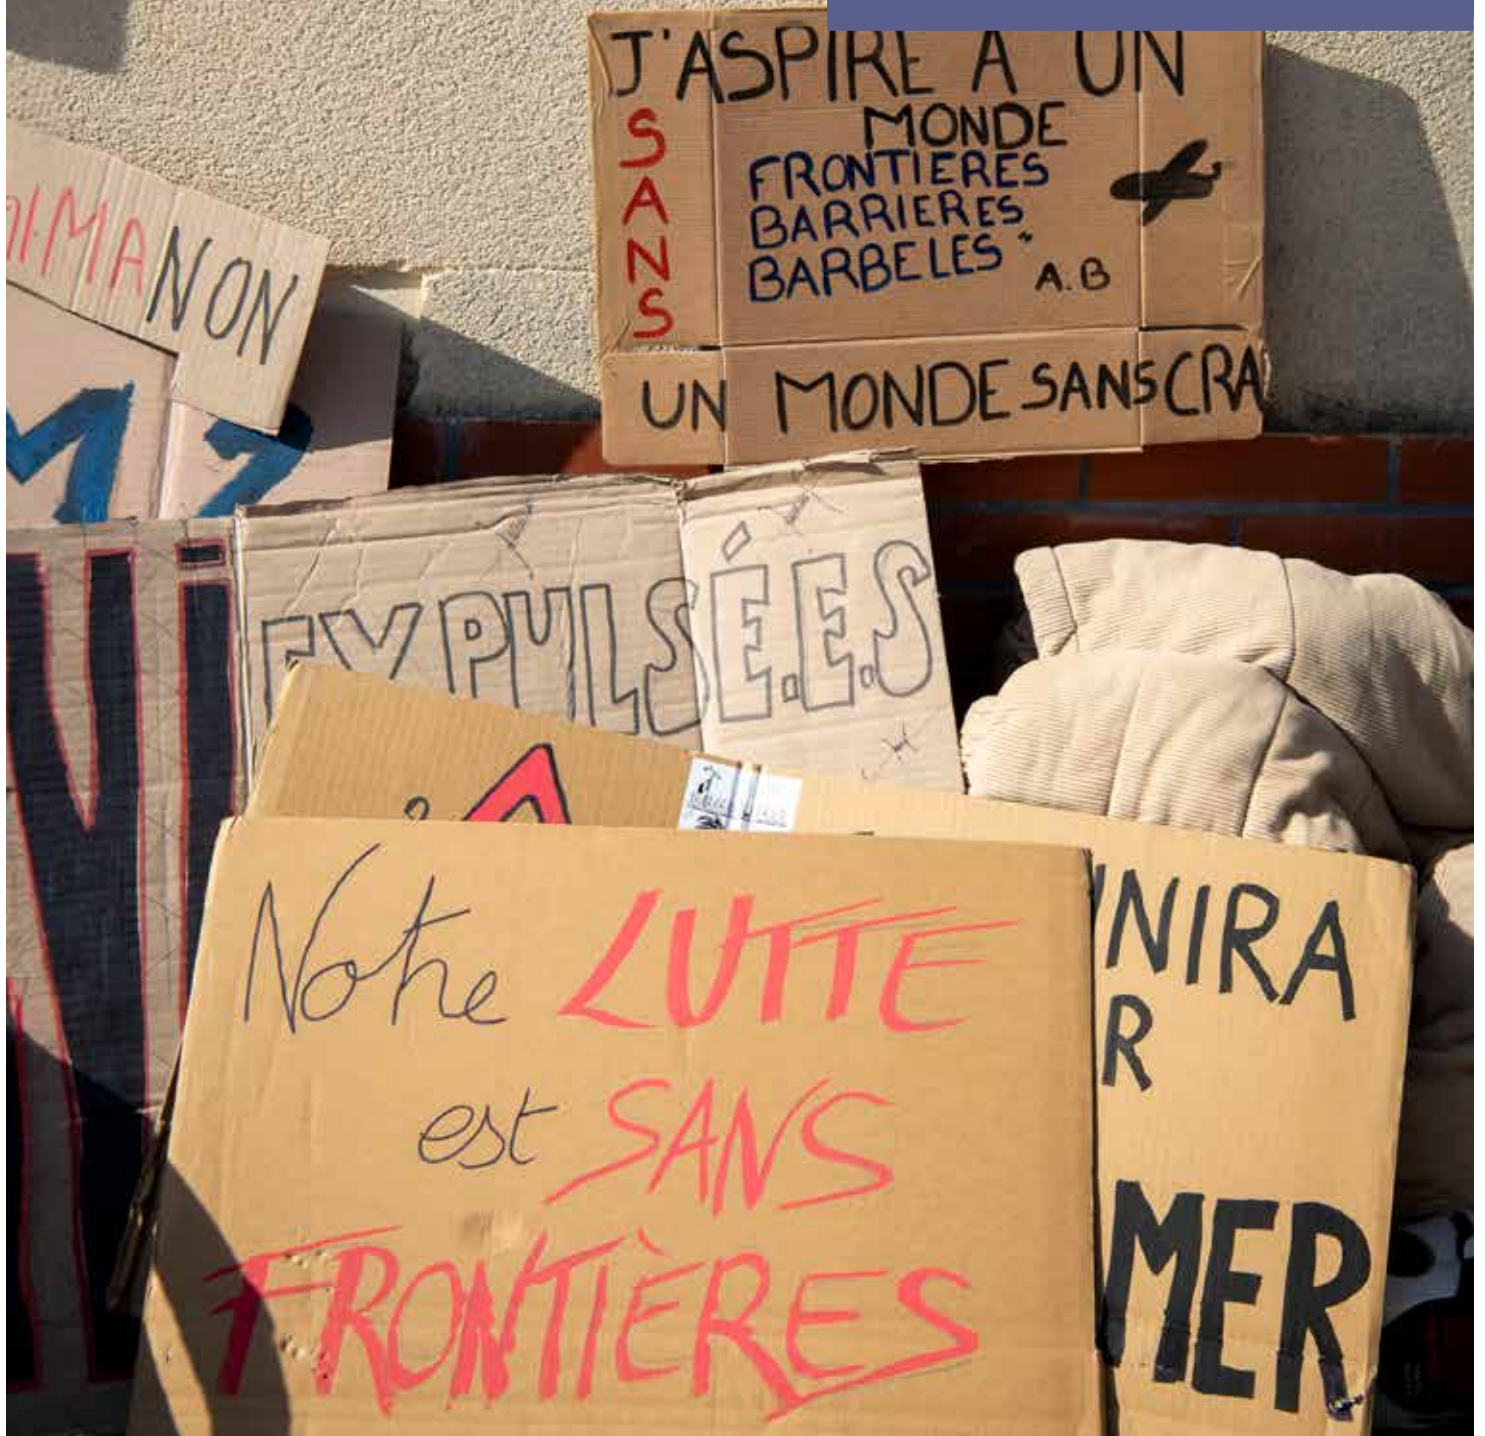 J'ASPIRE A UN
MONDE
SANS
FRONTIERES
BARRIERES
BARBELES"
A.B
UN MONDE SANS CRA
MANON
EXPULSÉ.E.S
Notre LUTTE
est SANS
FRONTIÈRES
NIRA
R
MER